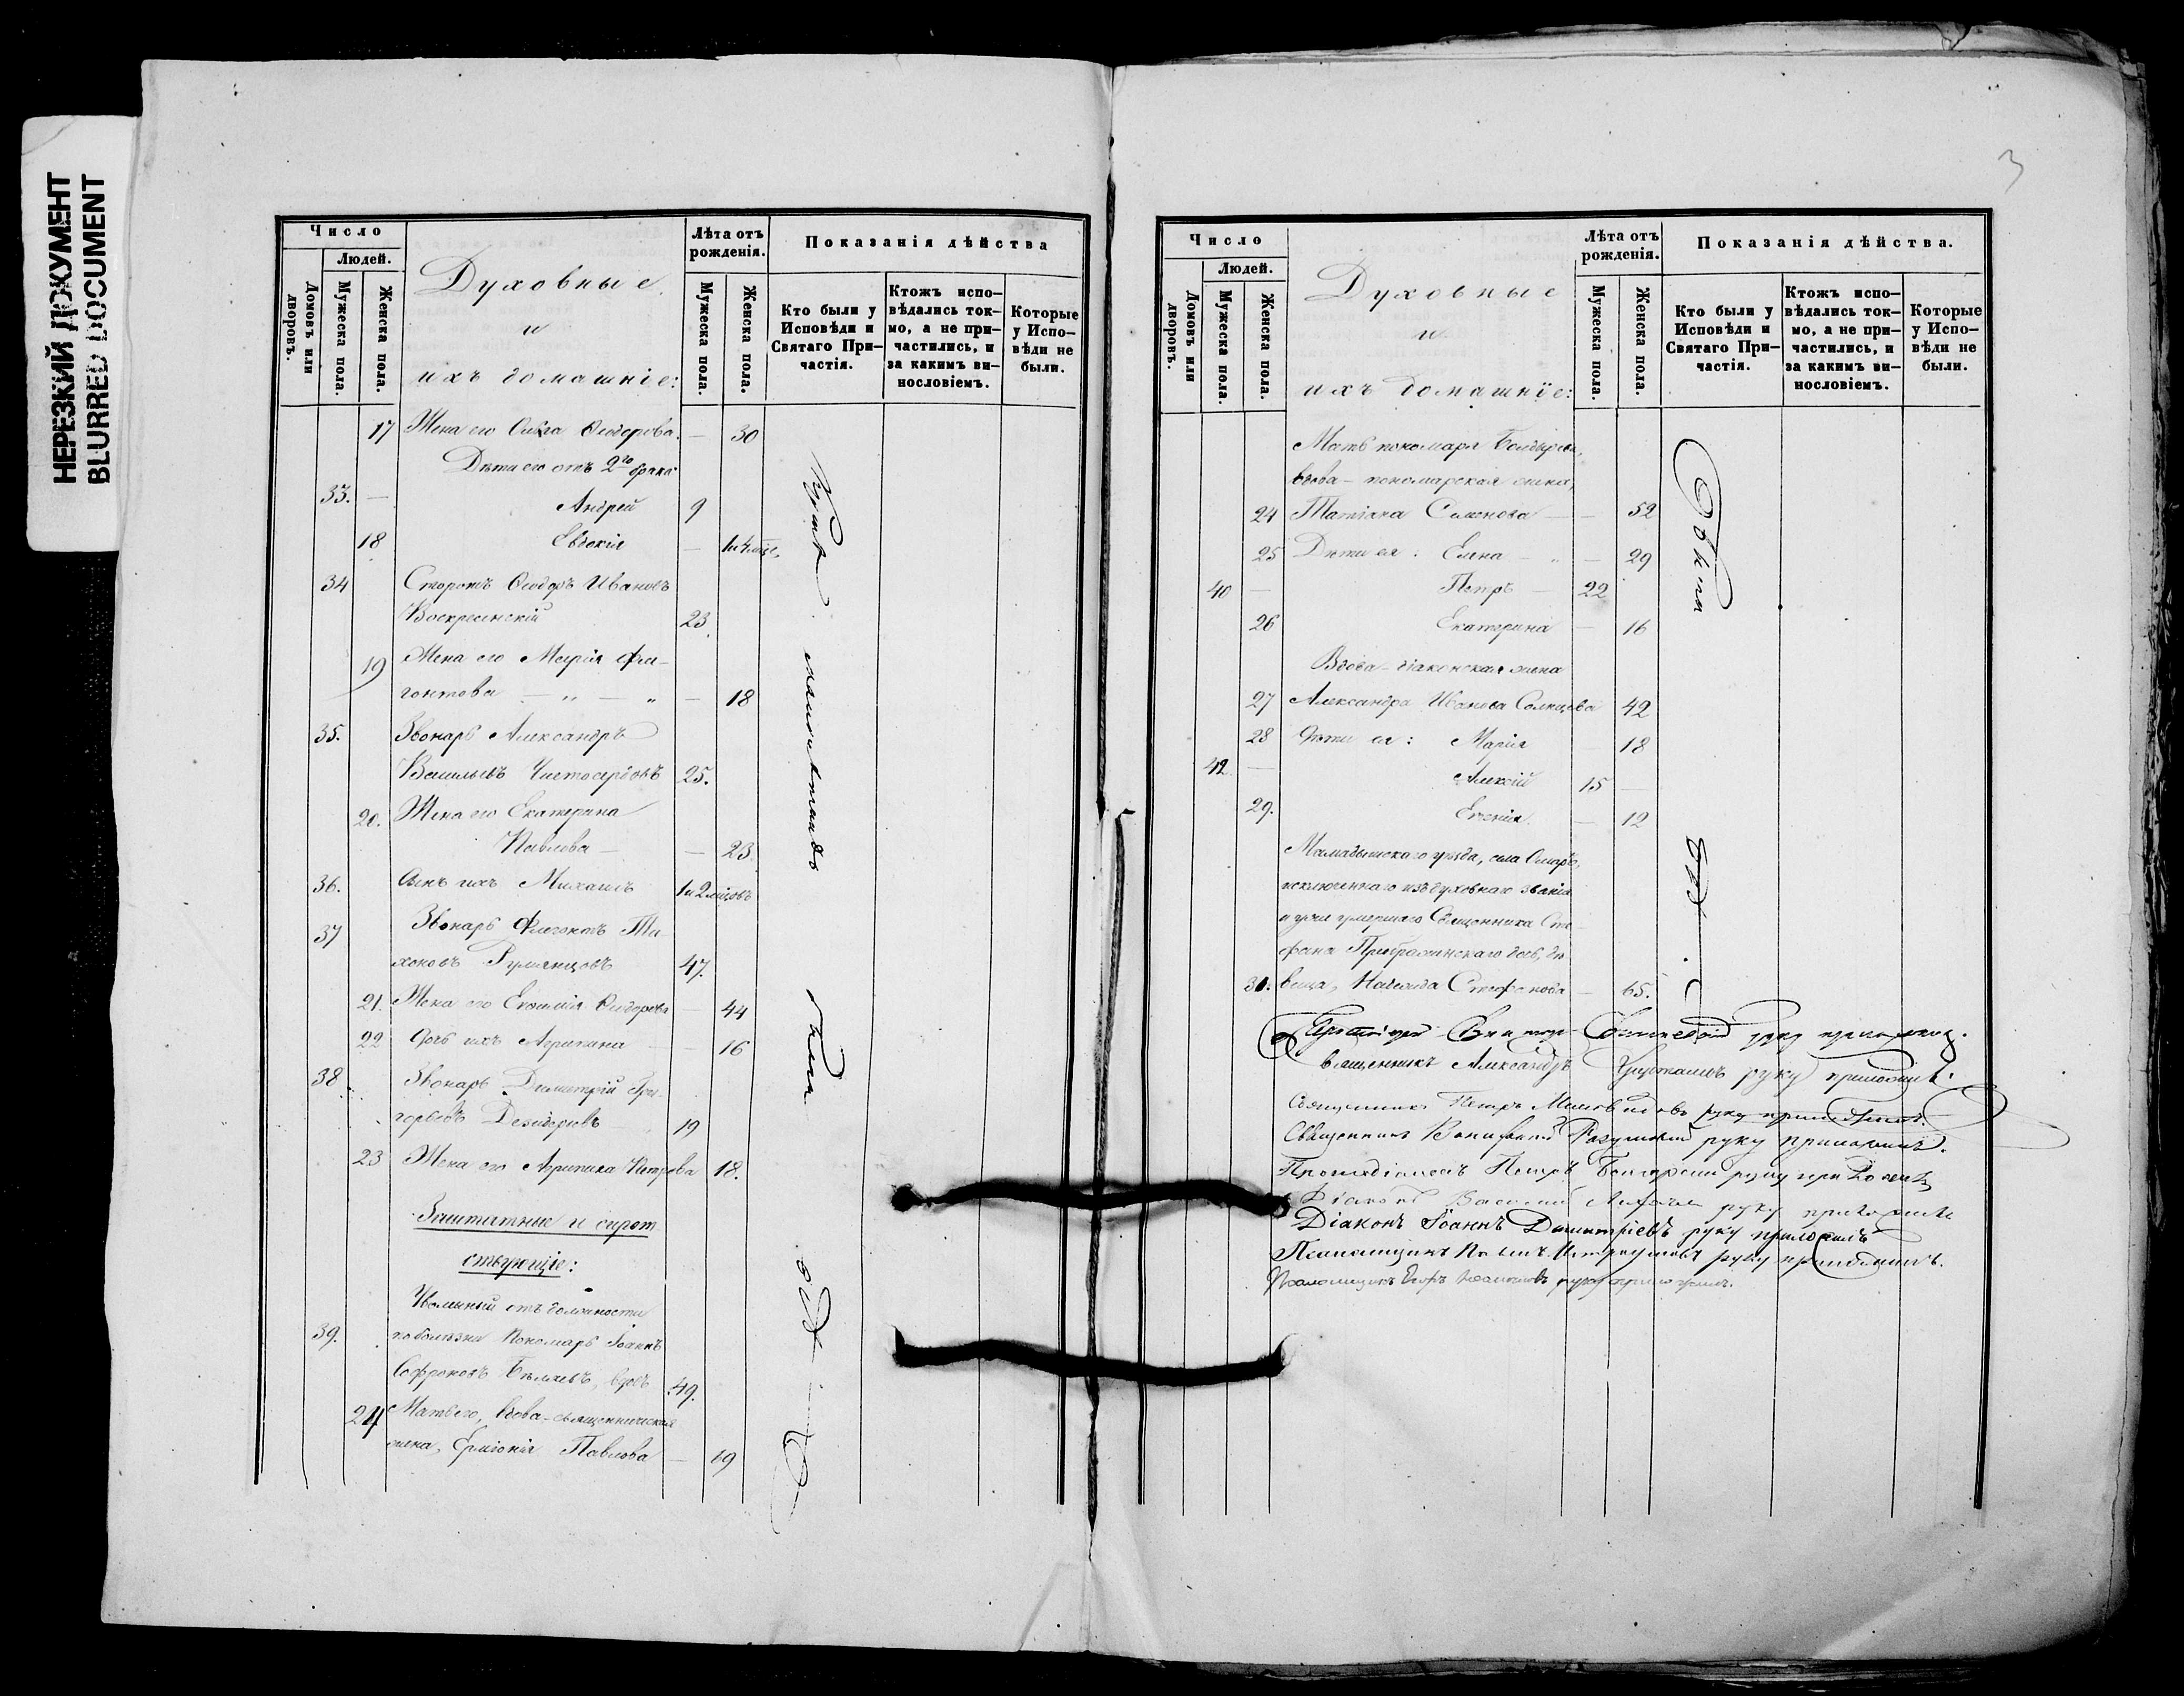 НЕРЕЗКИЙ ДОКУМЕНТ
BLURRED DOCUMENT
Число
Людей.
Домовъ или дворовъ.
Мужеска пола.
Женска пола.
Духовные
и
ихъ домашніе:
Лѣта отъ рожденія.
Мужеска пола.
Женска пола.
Показанія дѣйства
Кто были у Исповѣди и Святаго При-
частія.
Ктожъ испо-
вѣдались ток-
мо, а не при-
частились, и
за какимъ ви-
нословіемъ.
Которые
у Испо-
вѣди не
были.
17 Жена его Ольга Ѳеодорова. — 30
Дѣти его отъ 2го брака
33. — Андрей 9
18 Евдокія —
34 Сторожъ Ѳеодоръ Ивановъ
Воскресенскій 23.
19 Жена его Марія Фле-
гонтова — „ — „ — 18
35. Звонарь Александръ
Васильевъ Чистосердовъ 25.
20. Жена его Екатерина
Павлова — — 23
36. Сынъ ихъ Михаилъ 1 и 2 мѣсяцовъ
37 Звонарь Флегонтъ Ти-
хоновъ Румянцовъ 47.
21. Жена его Евфимія Ѳеодорова — 44
22 Дочь ихъ Агрипина — — 16
38 Звонарь Димитрій Гри-
горьевъ Дезидерьевъ 19
23 Жена его Агрипина Петрова 18.
Заштатные и сирот
ствующіе:
Уволенный отъ должности
39. по болѣзни Пономарь Іоаннъ
Софроновъ Бѣляевъ, вдовъ 49.
24 Мать его, вдова-священническая
жена, Ермонія Павлова — 69
были
3
Число
Людей.
Домовъ или дворовъ.
Мужеска пола.
Женска пола.
Духовные
и
ихъ домашніе:
Лѣта отъ рожденія.
Мужеска пола.
Женска пола.
Показанія дѣйства.
Кто были у
Исповѣди и
Святаго При-
частія.
Ктожъ испо-
вѣдались ток-
мо, а не при-
частились, и
за какимъ ви-
нословіемъ.
Которые
у Испо-
вѣди не
были.
Мать пономаря
вдова - пономарская жена,
24 Татіана Симонова — — 52
25 Дѣти ея: Елена — „ — 29
40 — Петръ — 22
26 Екатерина — 16
Вдова - діаконская жена
27 Александра Иванова Солнцева 42
28 Дѣти ея: Марія — 18
42 — Алексій 15 —
29. Евгенія. — 12
Мамадышскаго уѣзда, села Омаръ,
исключеннаго изъ духовнаго званія
и уже умершаго Священника Сте-
фана Преображенскаго дочь, дѣ-
30. вица, Надежда Стефанова — 65.
руку приложилъ.
Священникъ Александръ руку приложилъ.
Священникъ Петръ Миловидовъ руку приложилъ.
Священникъ Вонифатій Разумовскій руку приложилъ.
Протодіаконъ Петръ руку приложилъ
Діаконъ Василій руку приложилъ
Діаконъ Іоаннъ Димитріевъ руку приложилъ
Псаломщикъ руку приложилъ.
Псаломщикъ руку приложилъ.